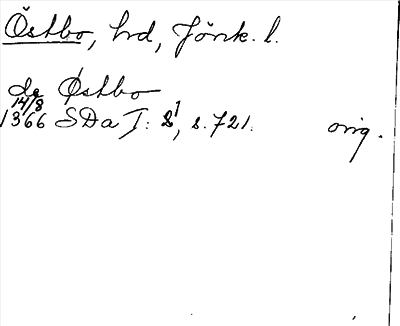 Östbo, hd, Jönk. l.
de Østbo
14/8
1366 SDa I: 2¹, s. 721. orig.